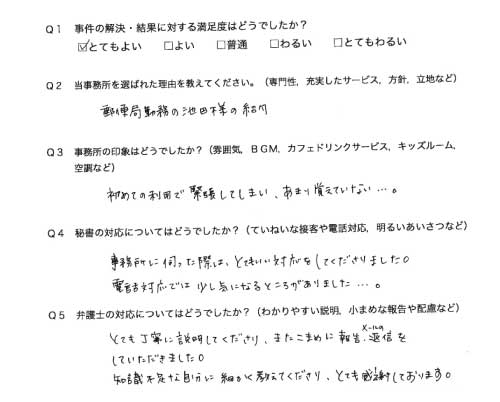 Q１ 事件の解決・結果に対する満足度はどうでしたか？
☑とてもよい □よい □普通 □わるい □とてもわるい
Q２ 当事務所を選ばれた理由を教えてください。（専門性，充実したサービス，方針，立地など）
郵便局勤務の池田様の紹介
Q３ 事務所の印象はどうでしたか？（雰囲気，ＢＧＭ，カフェドリンクサービス，キッズルーム，
空調など）
初めての利用で緊張してしまい、あまり覚えていない…。
Q４ 秘書の対応についてはどうでしたか？（ていねいな接客や電話対応，明るいあいさつなど）
事務所に伺った際は、とてもいい対応をしてくださりました。
電話対応では少し気になるところがありました…。
Q５ 弁護士の対応についてはどうでしたか？（わかりやすい説明，小まめな報告や配慮など）
とても丁寧に説明してくださり、またこまめに報告、メールの返信を
していただきました。
知識不足な自分に細かく教えてくださり、とても感謝しております。